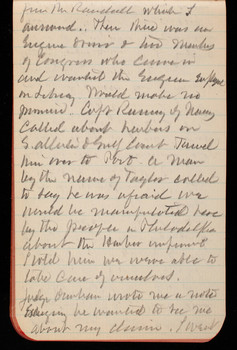 from Mr Randall which I
answered. Then there was an
Engine man & two Members
of Congress who came in
and wanted the Engine
on Would make no
promise. Capt Rumsey of Navy
called about harbor on
Gulf Coast Turned
him over to Post. A man
by the name of Taylor called
to say he was afraid we
would be manipulated here
by the people in Philadelphia
about the Harbor
I told him we were able to
take care of ourselves.
Judge Durham wrote me a note
saying he wanted to see me
about my claim. I went